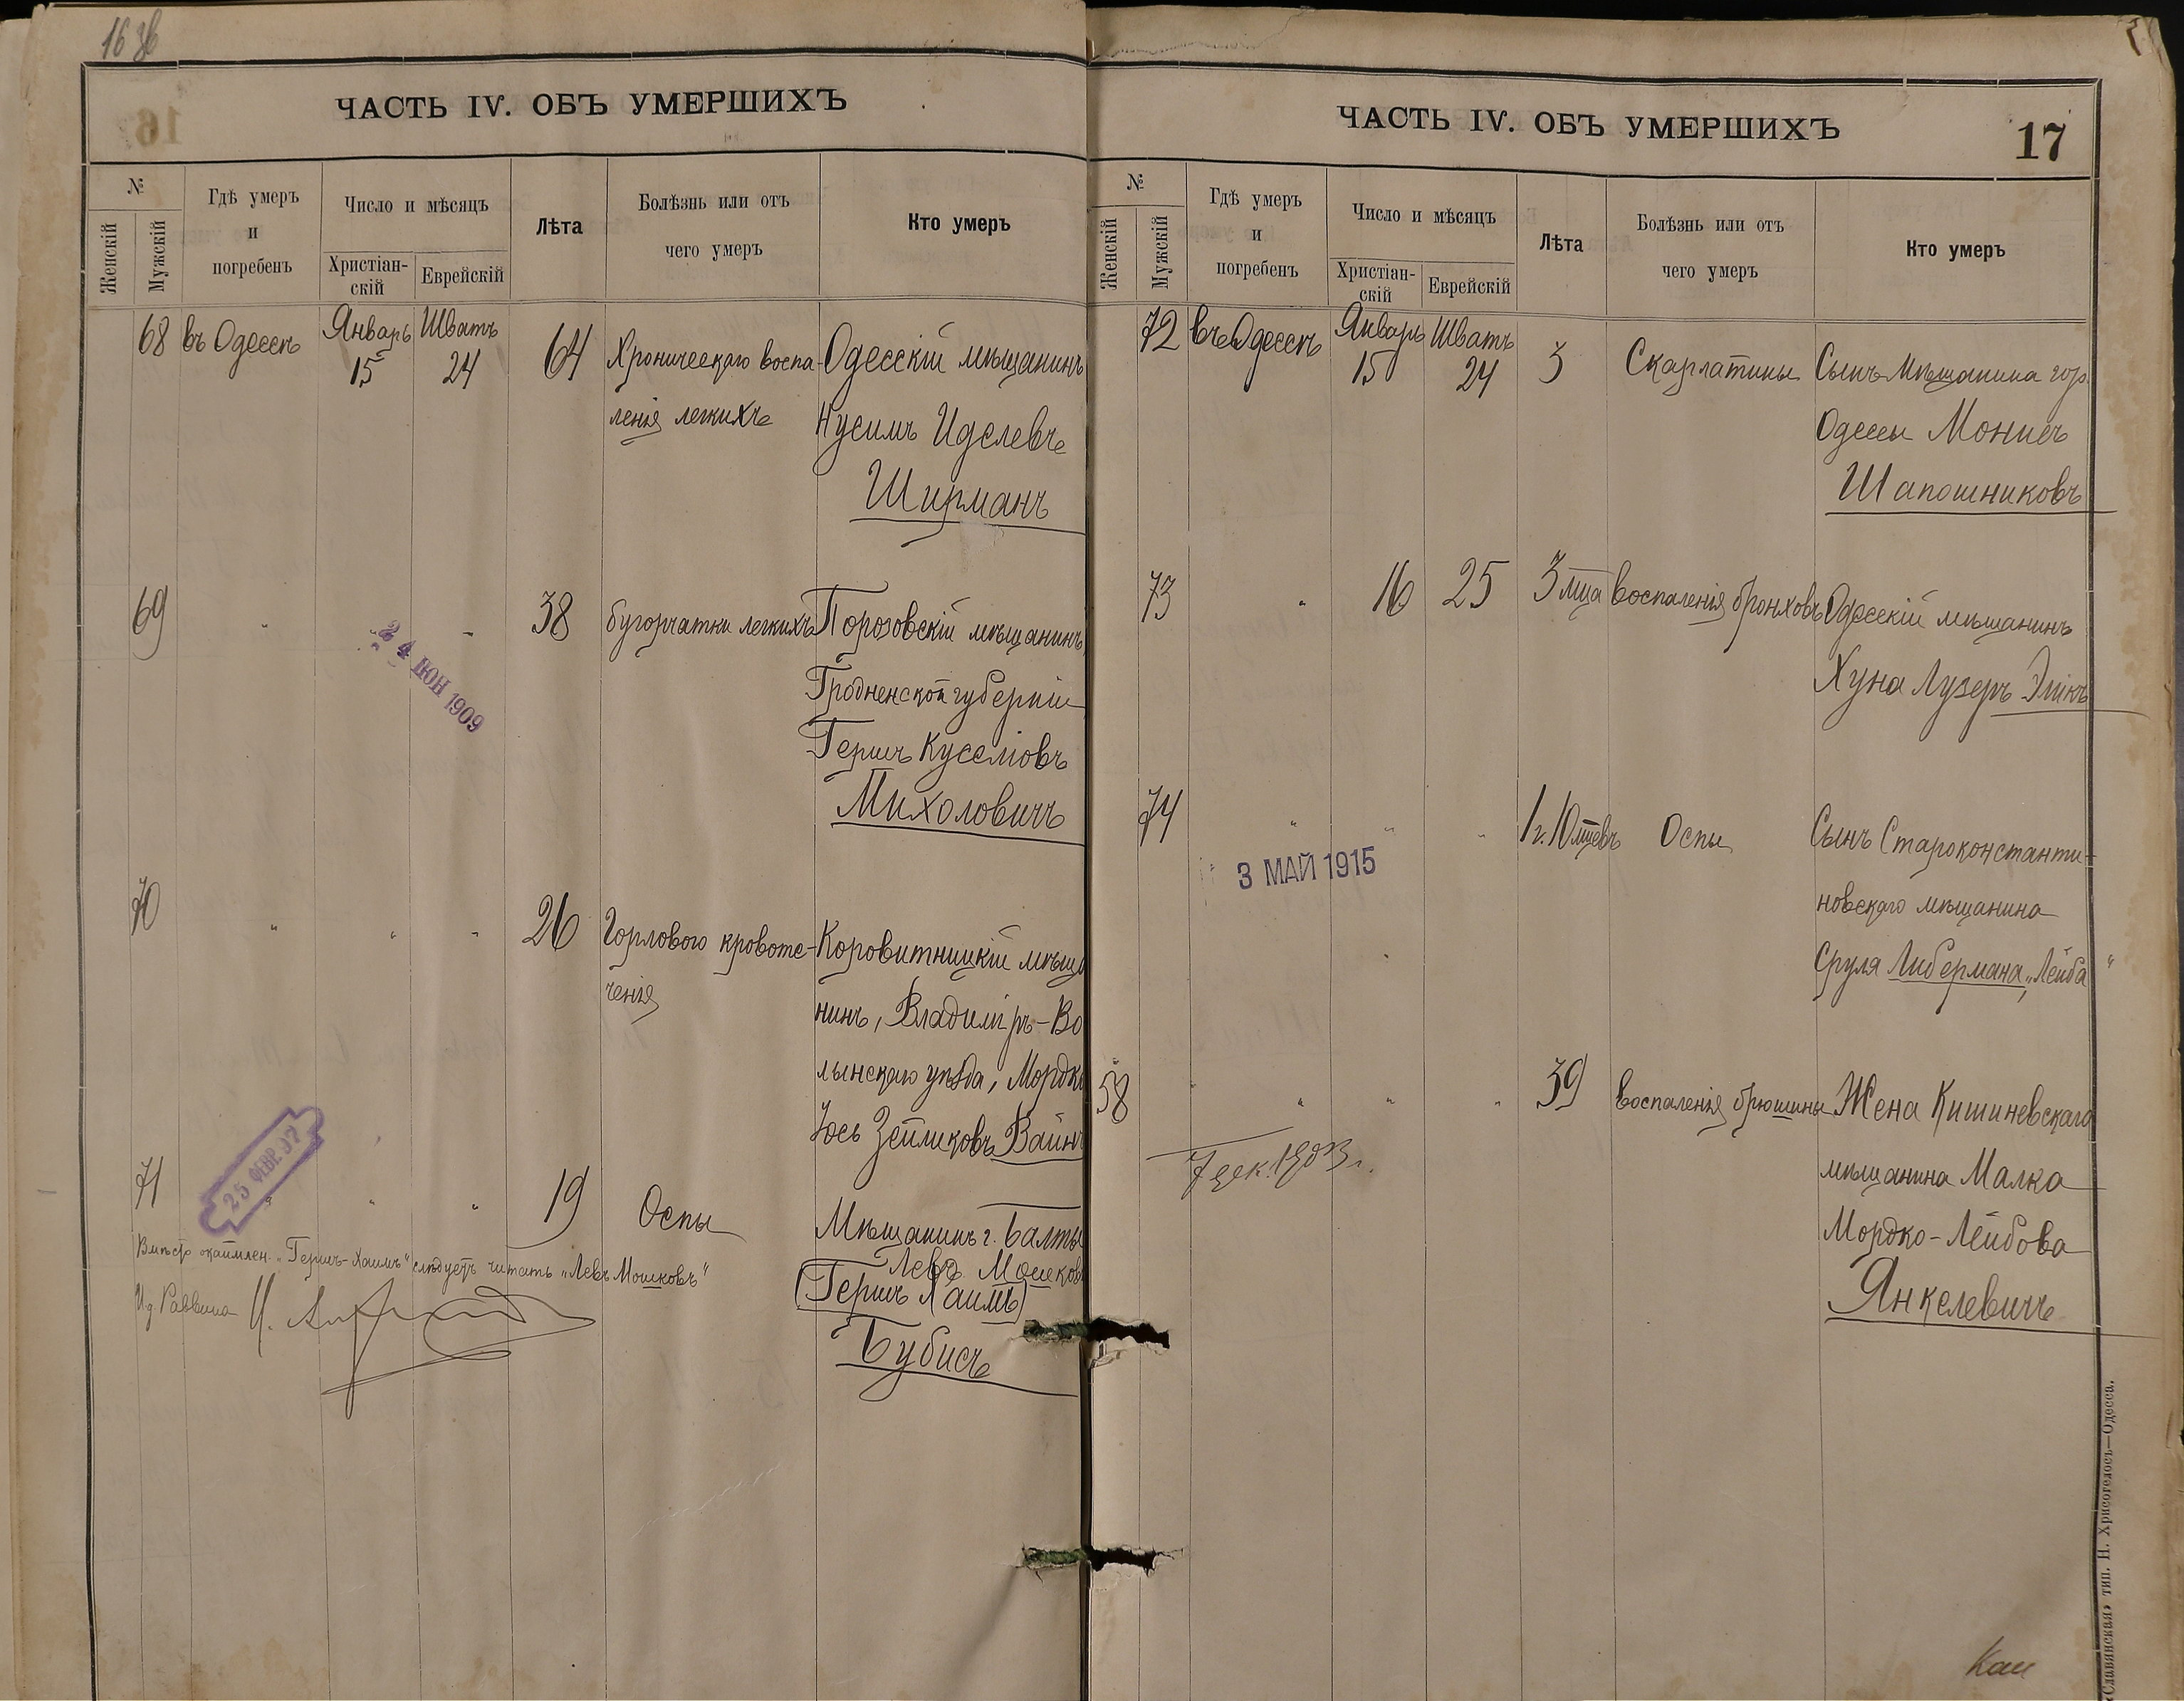 16 об
ЧАСТЬ IV. ОБЪ УМЕРШИХЪ
№
Женскій
Мужскій
Гдѣ умеръ
и
погребенъ
Число и мѣсяцъ
Христіан-
скій
Еврейскій
Лѣта
Болѣзнь или отъ
чего умеръ
Кто умеръ
68 въ Одессѣ Январь 15 Шватъ 24 64 Хроническаго воспа- Одесскій мѣщанинъ
ленія легкихъ Нусимъ Иделевъ
Ширманъ
69 " " 38 бугорчатки легкихъ Порозовскій мѣщанинъ,
24 ІЮН 1909
Гродненской губерніи
Гершъ Куселіовъ
Михоловичъ
70 " " " 26 Горлового кровоте- Коровитницкій мѣща
ченія нинъ, Владиміръ-Во
лынскаго уѣзда, Мордко
Іось Зейликовъ Вайн
25 ФЕВР. 07
71 " " " 19 Оспы Мѣщанинъ г. Балты
Левъ Мошков
(Гершъ Хаимъ)
Бубисъ
Вмѣсто окаймлен. "Гершъ-Хаимъ" слѣдуетъ читать "Левъ Мошковъ"
И д Раввина
ЧАСТЬ IV. ОБЪ УМЕРШИХЪ
17
№
Женскій
Мужскій
Гдѣ умеръ
и
погребенъ
Число и мѣсяцъ
Христіан-
скій
Еврейскій
Лѣта
Болѣзнь или отъ
чего умеръ
Кто умеръ
72 въ Одессѣ Январь 15 Шватъ 24 3 Скарлатины Сынъ мѣщанина гор.
Одессы Монисъ
Шапошниковъ
73 " 16 25 3 мца воспаленія бронховъ Одесскій мѣщанинъ
Хуна Лузеръ Эпикъ
74 " " " 1 г. 10 мцевъ Оспы Сынъ Староконстанти-
3 МАЙ 1915
новскаго мѣщанина
Сруля Либермана, "Лейба"
58 " " " 39 воспаленія брюшины Жена Кишиневскаго
7 дек. 1903 г.
мѣщанина Малка
Мордко-Лейбова
Янкелевичъ
«Славянская» тип. Н. Хрисогелосъ—Одесса.